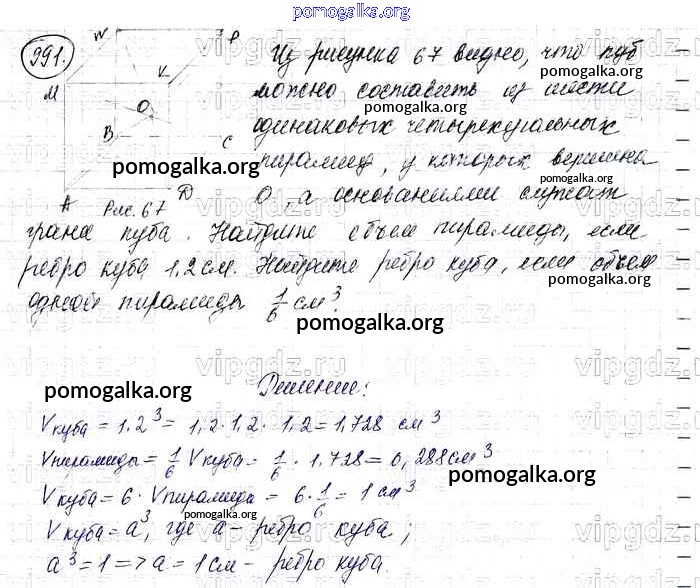 pomogalka.org
991.
N
P
M
K
O
B
C
A
D
Рис. 67
Из рисунка 67 видно, что куб
можно составить из шести
одинаковых четырехугольных
пирамид, у которых вершина
O, а основаниями служат
грани куба. Найдите объем пирамиды, если
ребро куба 1,2 см. Найдите ребро куба, если объем
одной пирамиды 1/6 см³.
Решение:
Vкуба = 1,2³ = 1,2 · 1,2 · 1,2 = 1,728 см³
Vпирамиды = 1/6 Vкуба = 1/6 · 1,728 = 0,288 см³
Vкуба = 6 · Vпирамида = 6 · 1/6 = 1 см³
Vкуба = a³, где a – ребро куба;
a³ = 1 => a = 1 см – ребро куба.
pomogalka.org
pomogalka.org
pomogalka.org
pomogalka.org
pomogalka.org
pomogalka.org
pomogalka.org
pomogalka.org
pomogalka.org